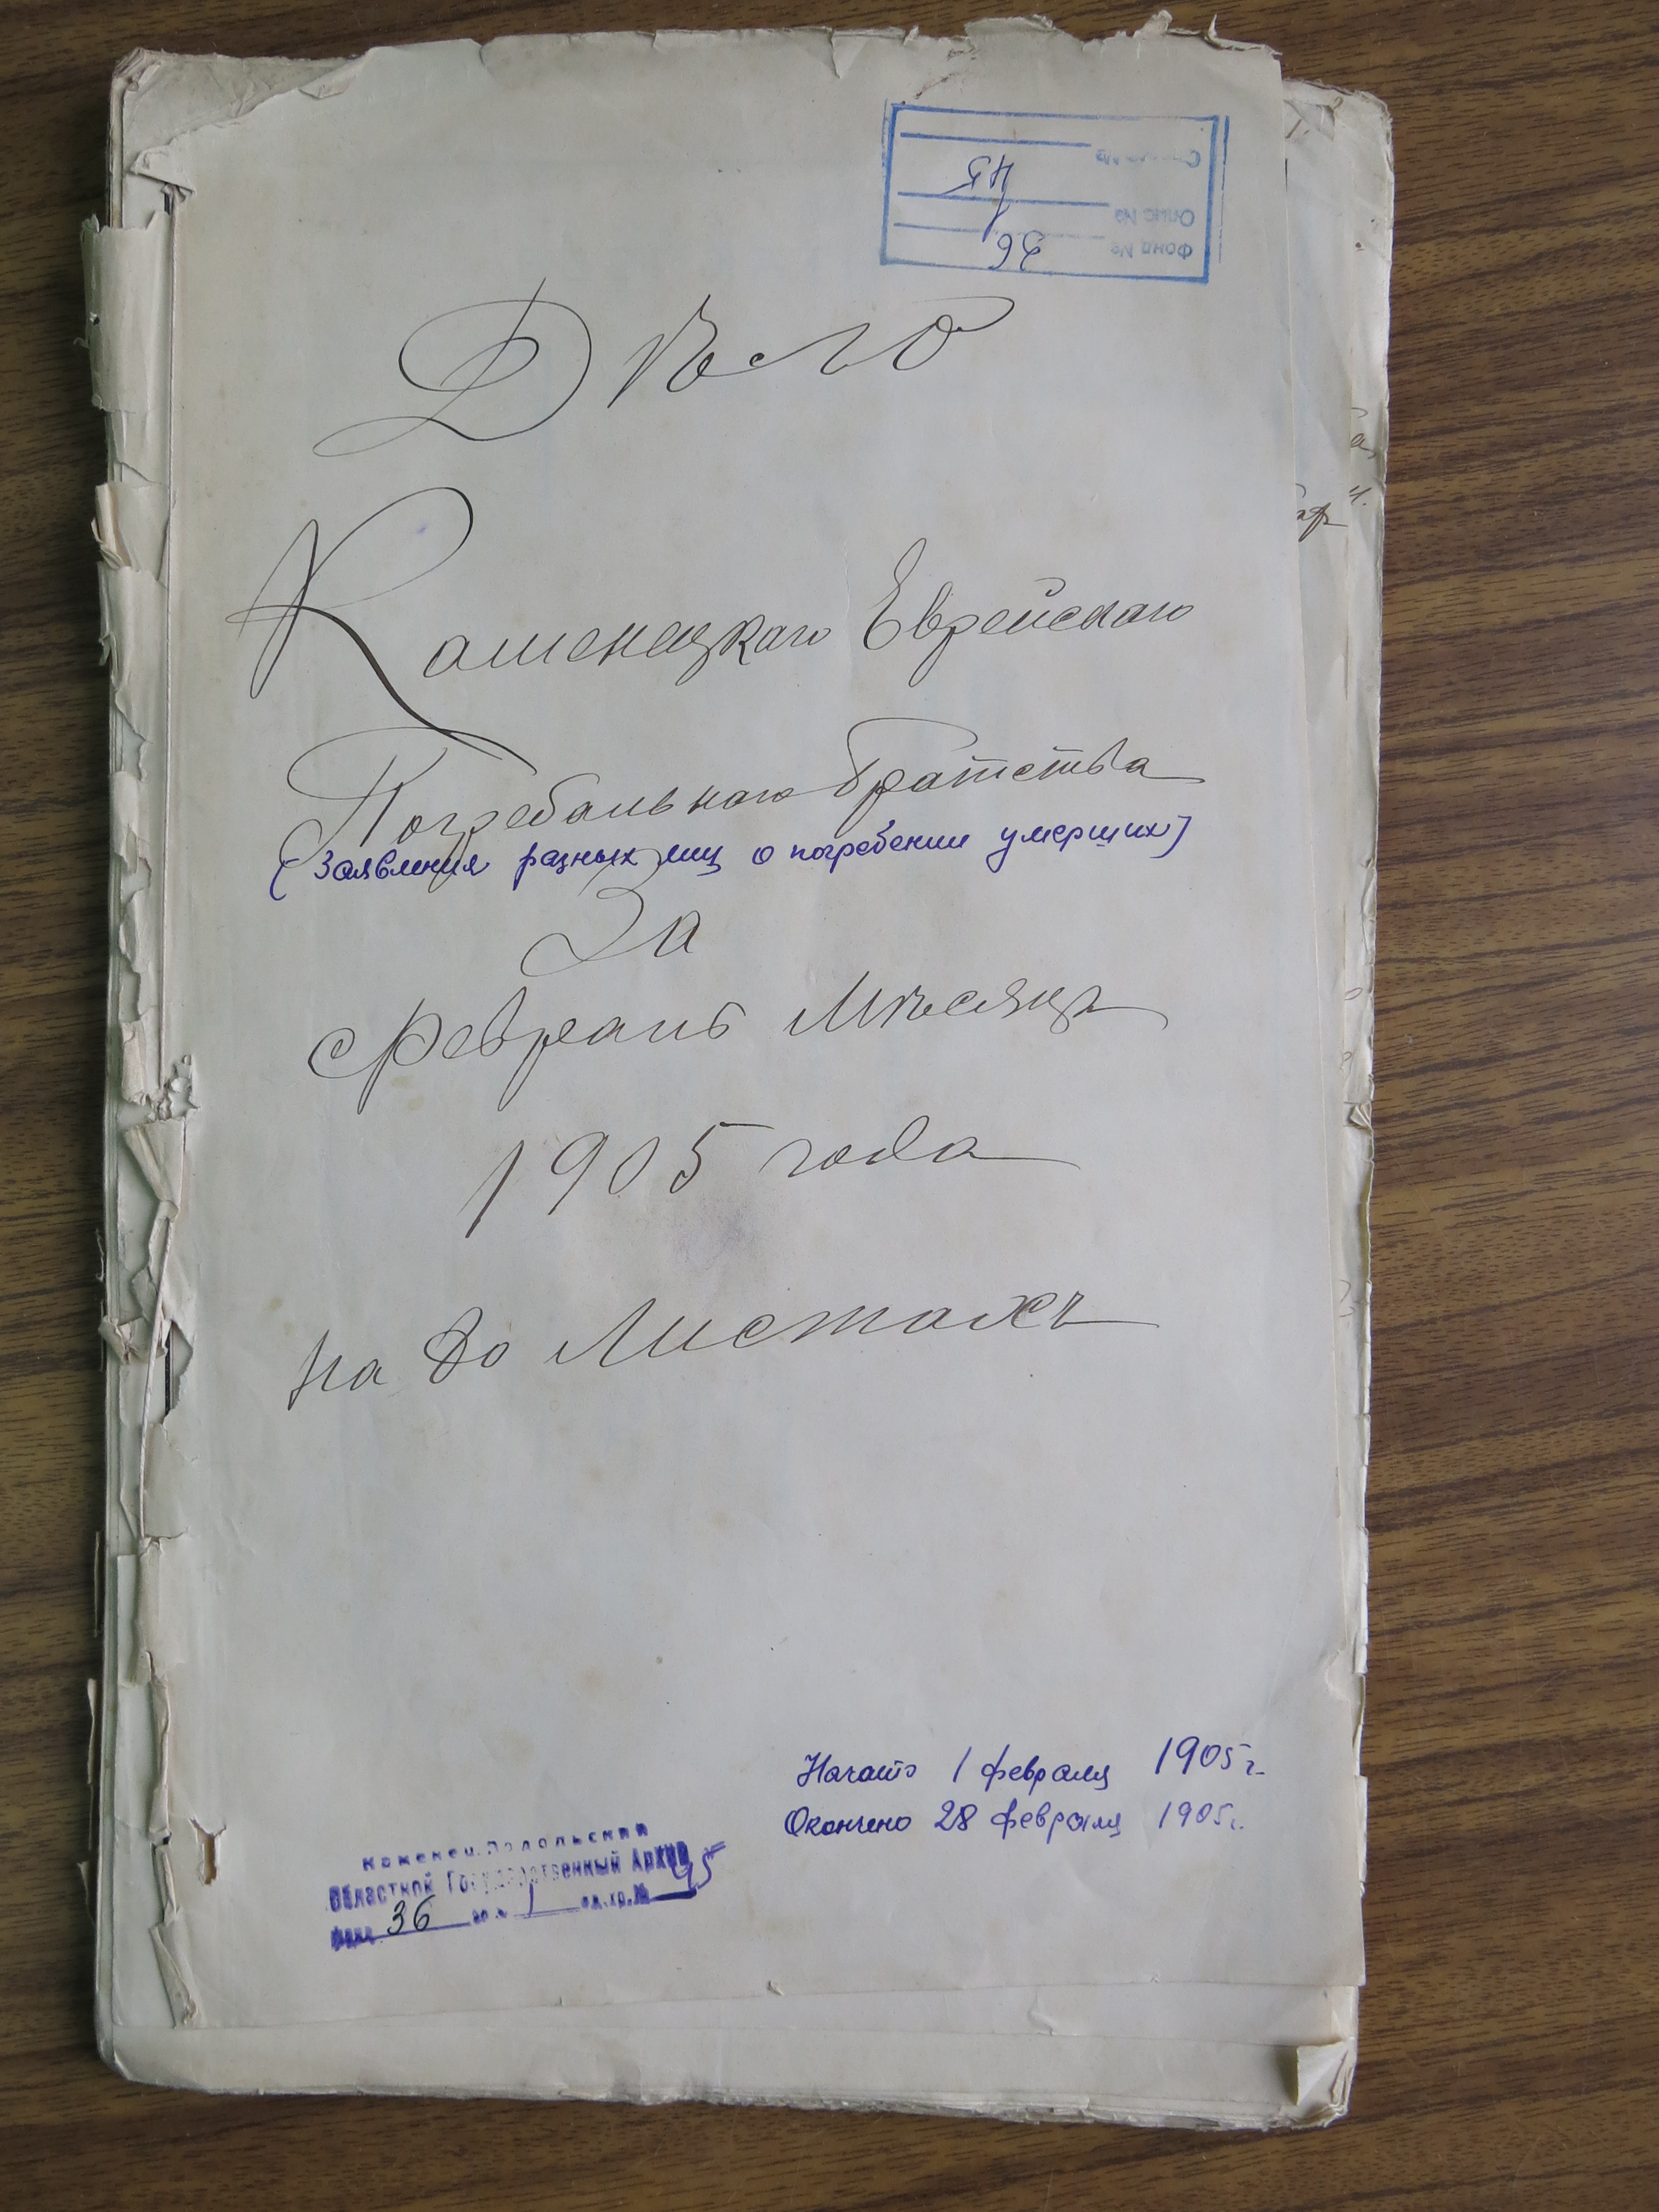 Фонд № 36
Опис № 1
45
Дѣло
Каменецкаго Еврейскаго
Погребальнаго братства
(Заявления разных лиц о погребении умерших)
За
Февраль Мѣсяцъ
1905 года
на 80 Листахъ
Начато 1 февраля 1905 г.
Окончено 28 февраля 1905 г.
Каменец-Подольский
Областной Государственный Архив
Фонд 36 оп. 1 ед. хр. № 45